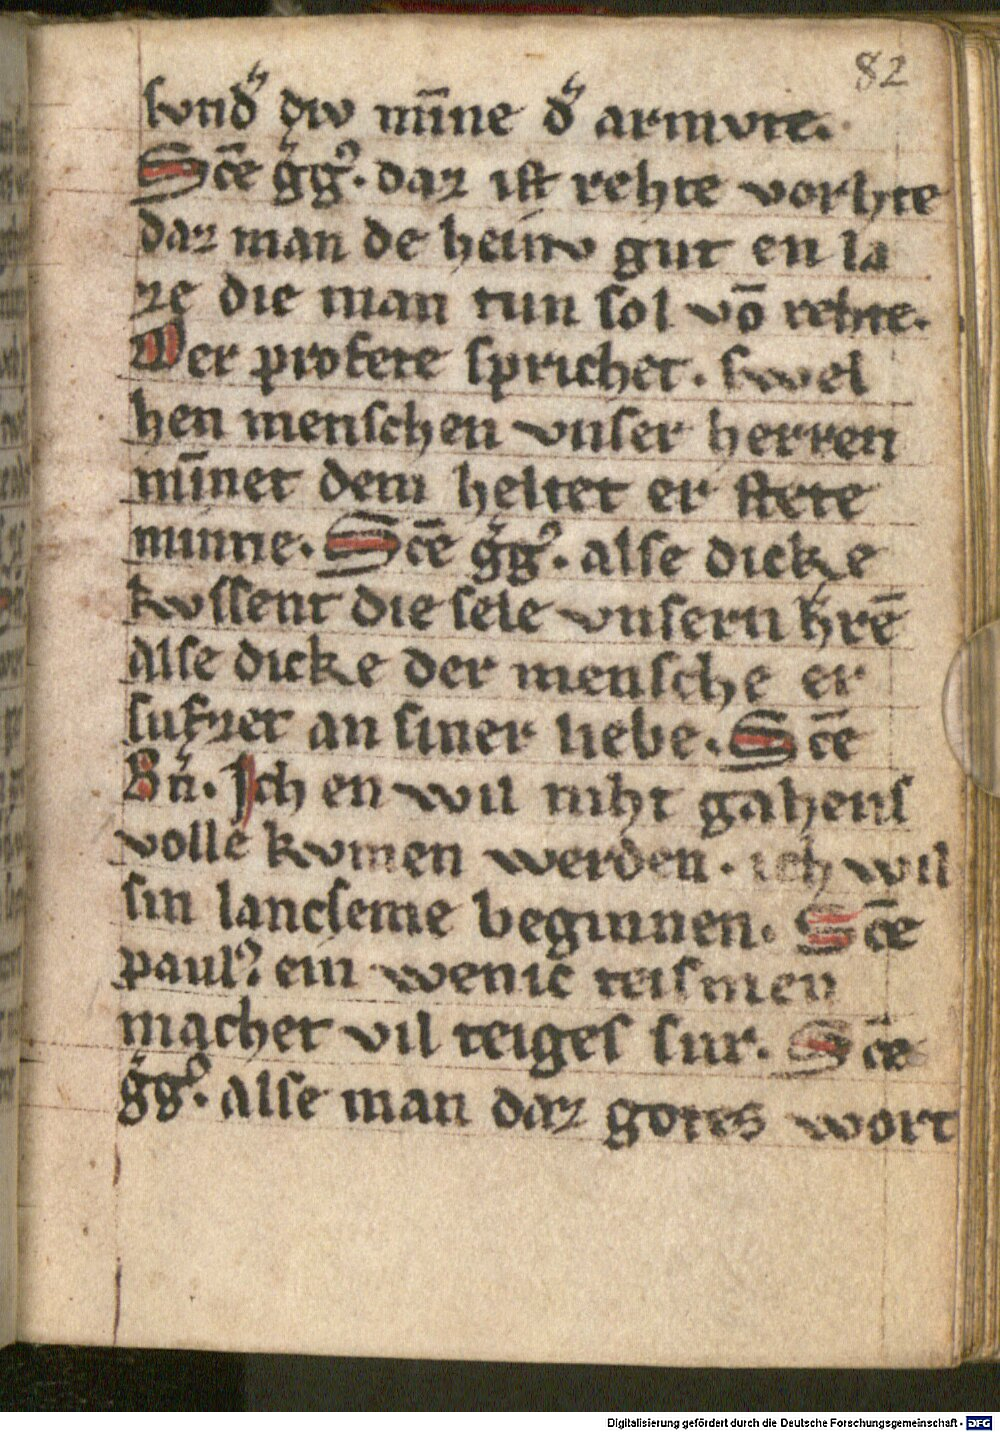 82
svndͤr div mīne dͤr armvte.
Sc̄e gͤgꝰ. daz ist rehte vorhte
daz man de heiniv gut en la
ze die man tun sol vō rehte.
Der profete sprichet. swel
hen menschen vnser herren
mīnet dem heltet er stete
minne. Sc̄e gͤgꝰ. alse dicke
kvssent die sele vnsern h̄rē
Alse dicke der mensche er
sufzet an siner liebe. Sc̄e
Bn̄. Ich en wil niht gahens
volle kvmen werden. ich wil
sin lancseme beginnen. Sc̄e
paulꝰ ein wenic teismen
machet vil teiges sur. Sc̄e
gͤgꝰ. alse man daz gotes wort
Digitalisierung gefördert durch die Deutsche Forschungsgemeinschaft - DFG